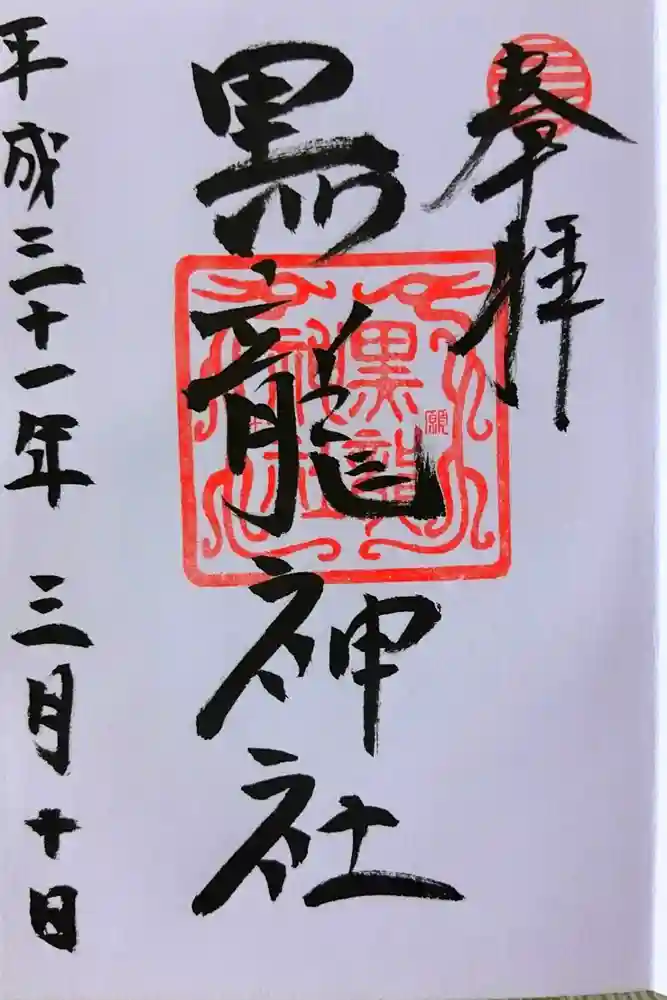 奉拝
黒龍神社
黒龍
神社
願
平成三十一年 三月十日